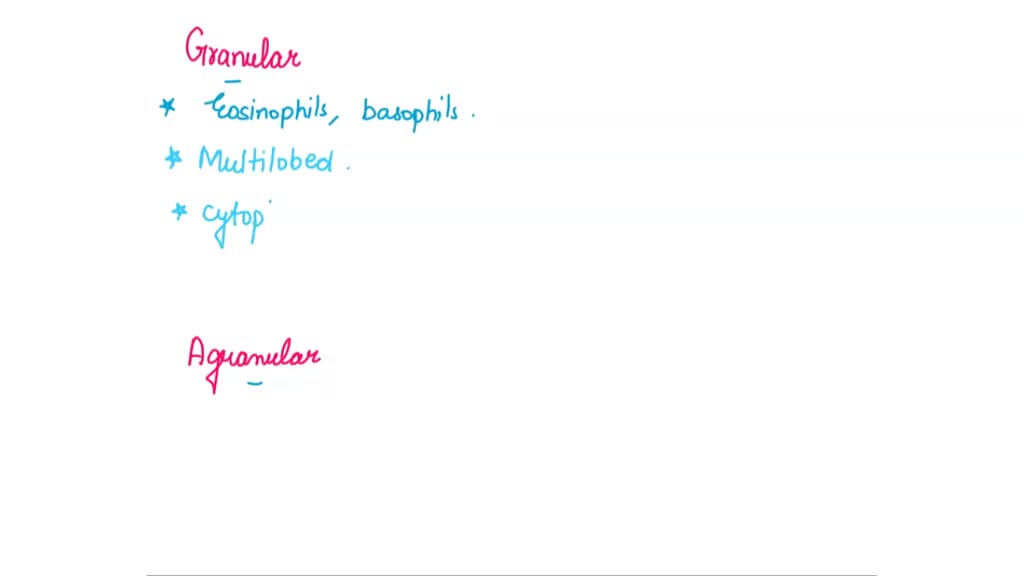 Granular
* Eosinophils, basophils.
* Multilobed.
* cytop
Agranular